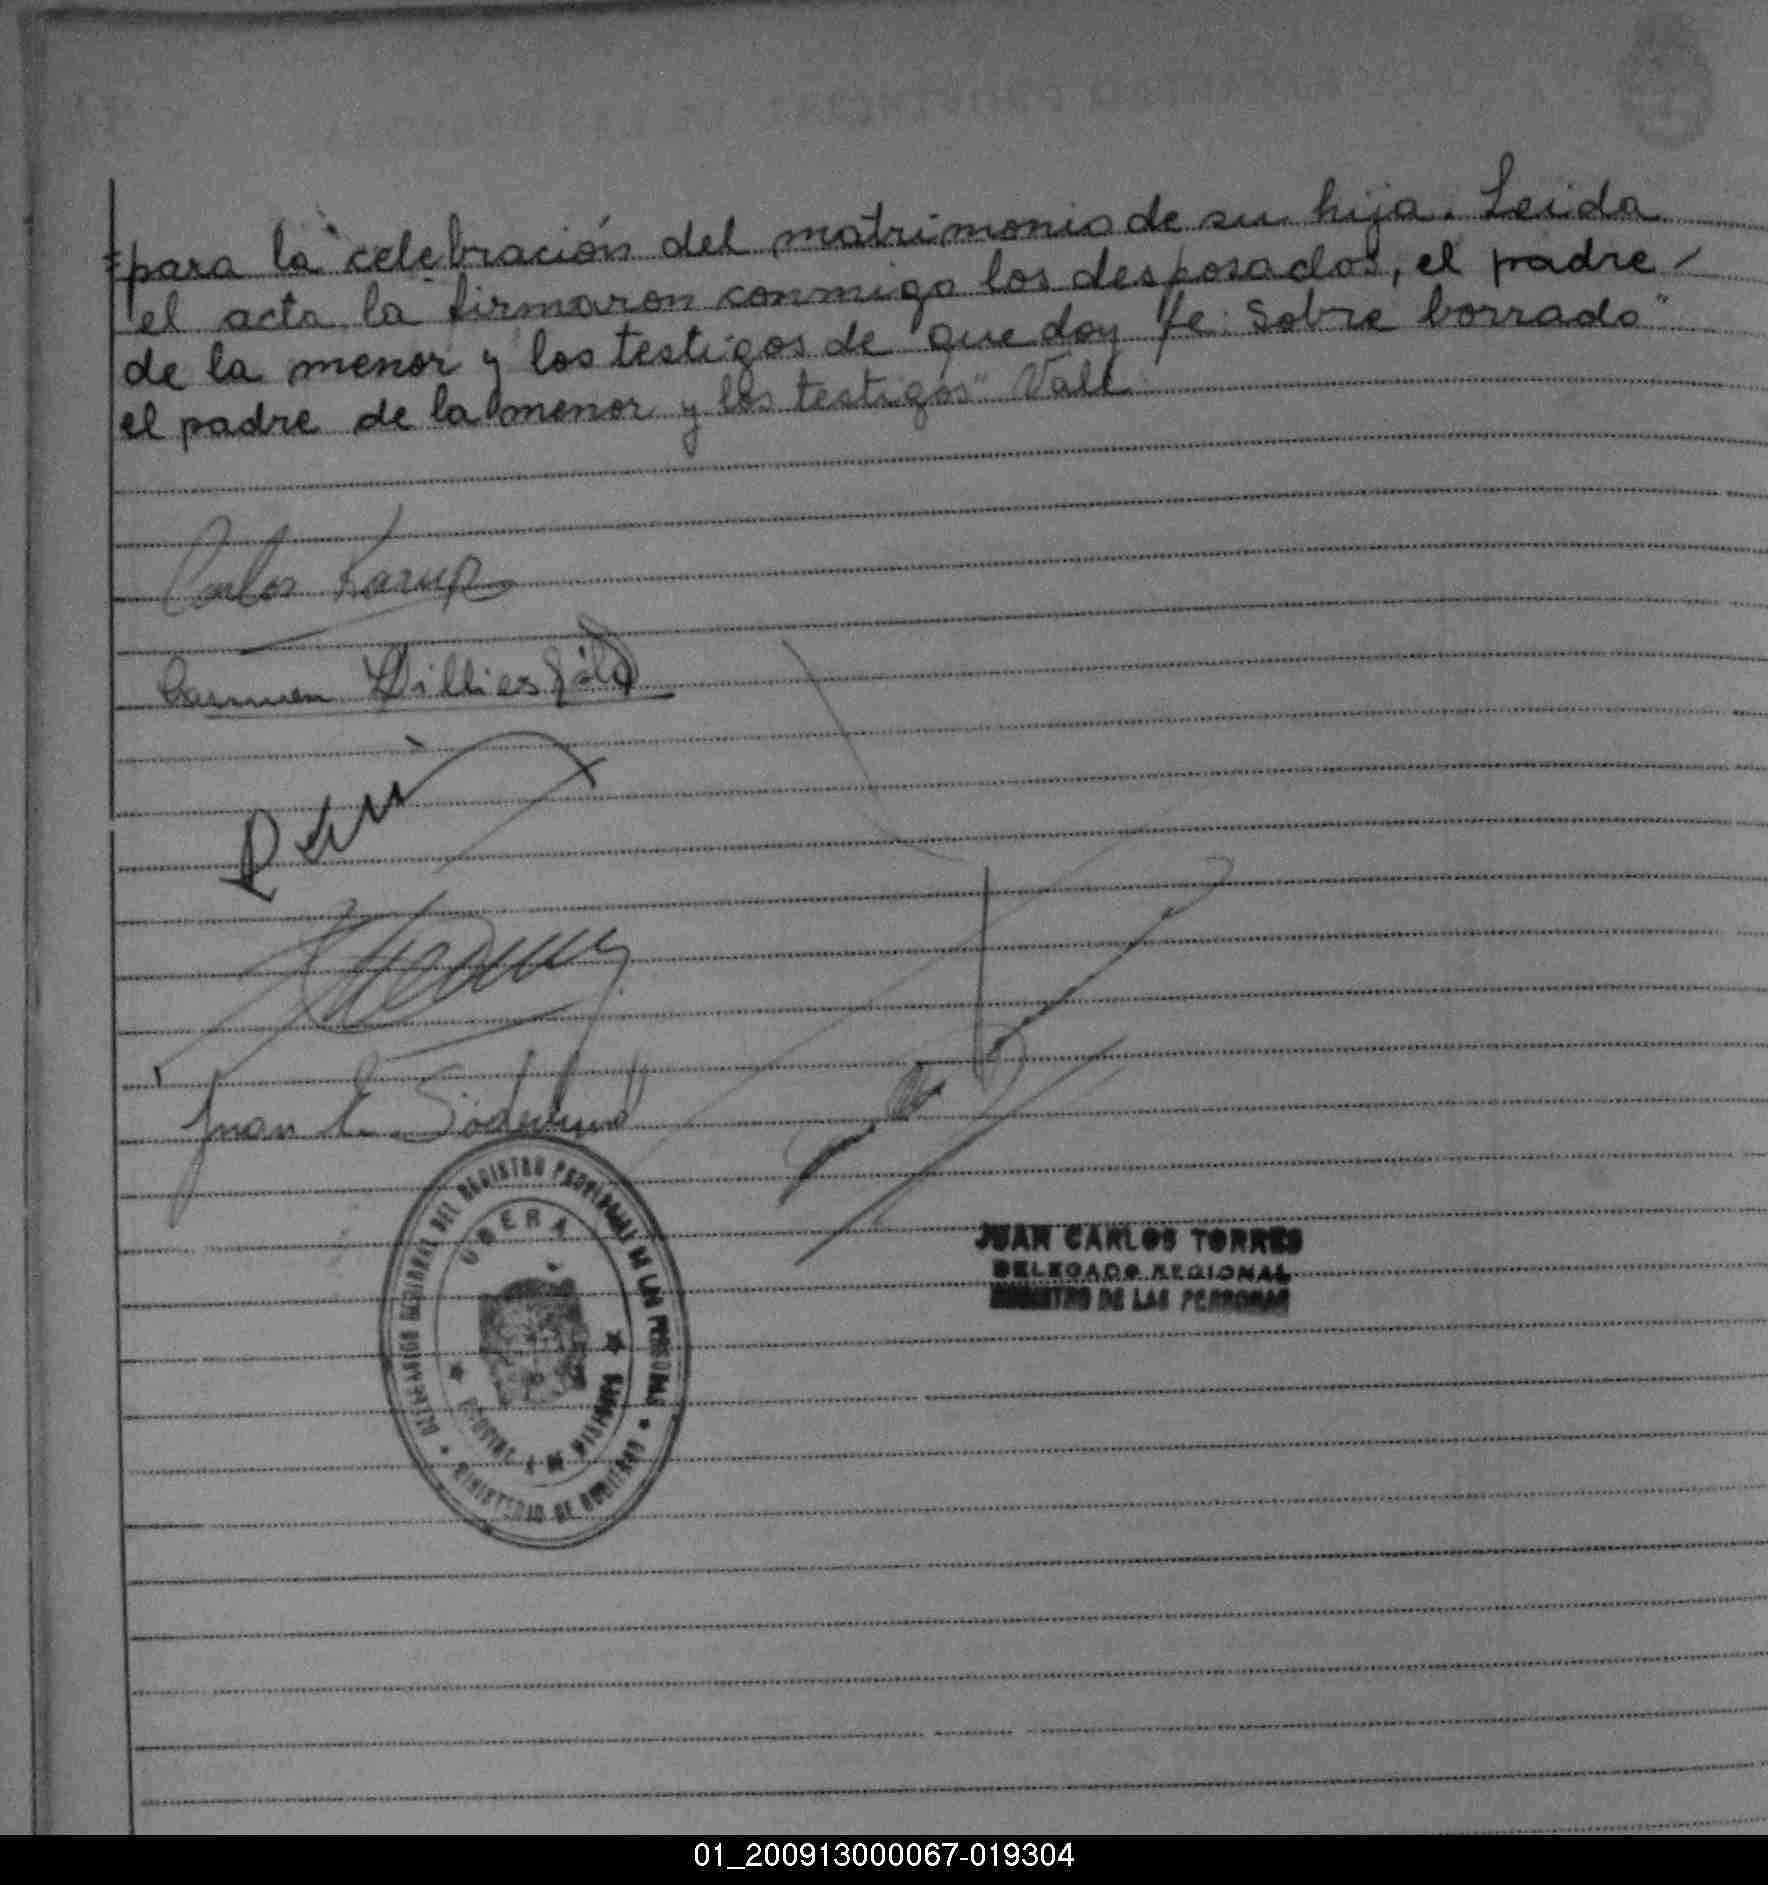 para la celebración del matrimonio de su hija. Leida
el acta la firmaron conmigo los desposados, el padre
de la menor y los testigos de que doy fe: Sobre borrado "
el padre de la menor y los testigos" Vall
Carlos
Carmen
Juan E. Söderlund
DELEGACION REGIONAL DEL REGISTRO PROVINCIAL DE LAS PERSONAS
OBERA
PROVINCIA DE MISIONES
MINISTERIO DE GOBIERNO
JUAN CARLOS TORRES
DELEGADO REGIONAL
REGISTRO DE LAS PERSONAS
01_200913000067-019304